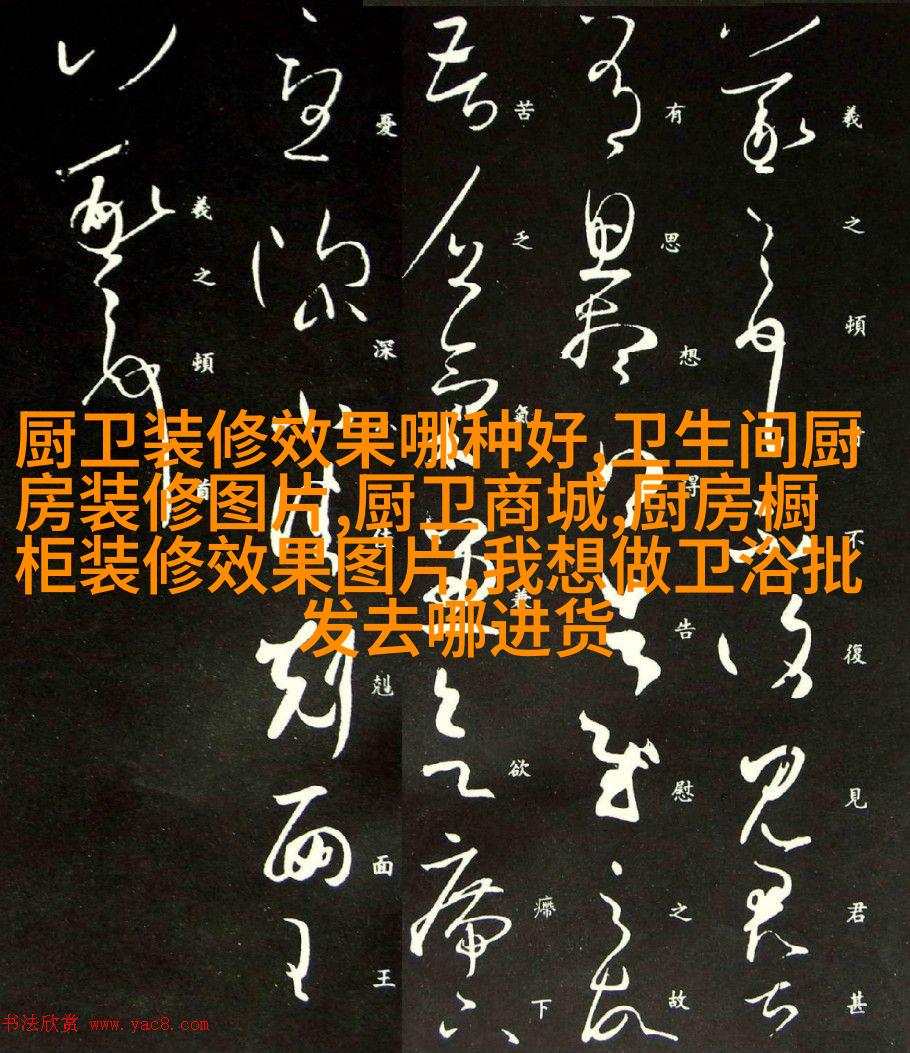 厨卫装修效果哪种好,卫生间厨
房装修图片,厨卫商城,厨房橱
柜装修效果图片,我想做卫浴批
发去哪进货
羲之頓首不復見君甚
有思想得告慰之故
苦乏氣兼欲㿃下
憂深佳剋面王
羲之頓首
书法欣赏 www.yac8.com